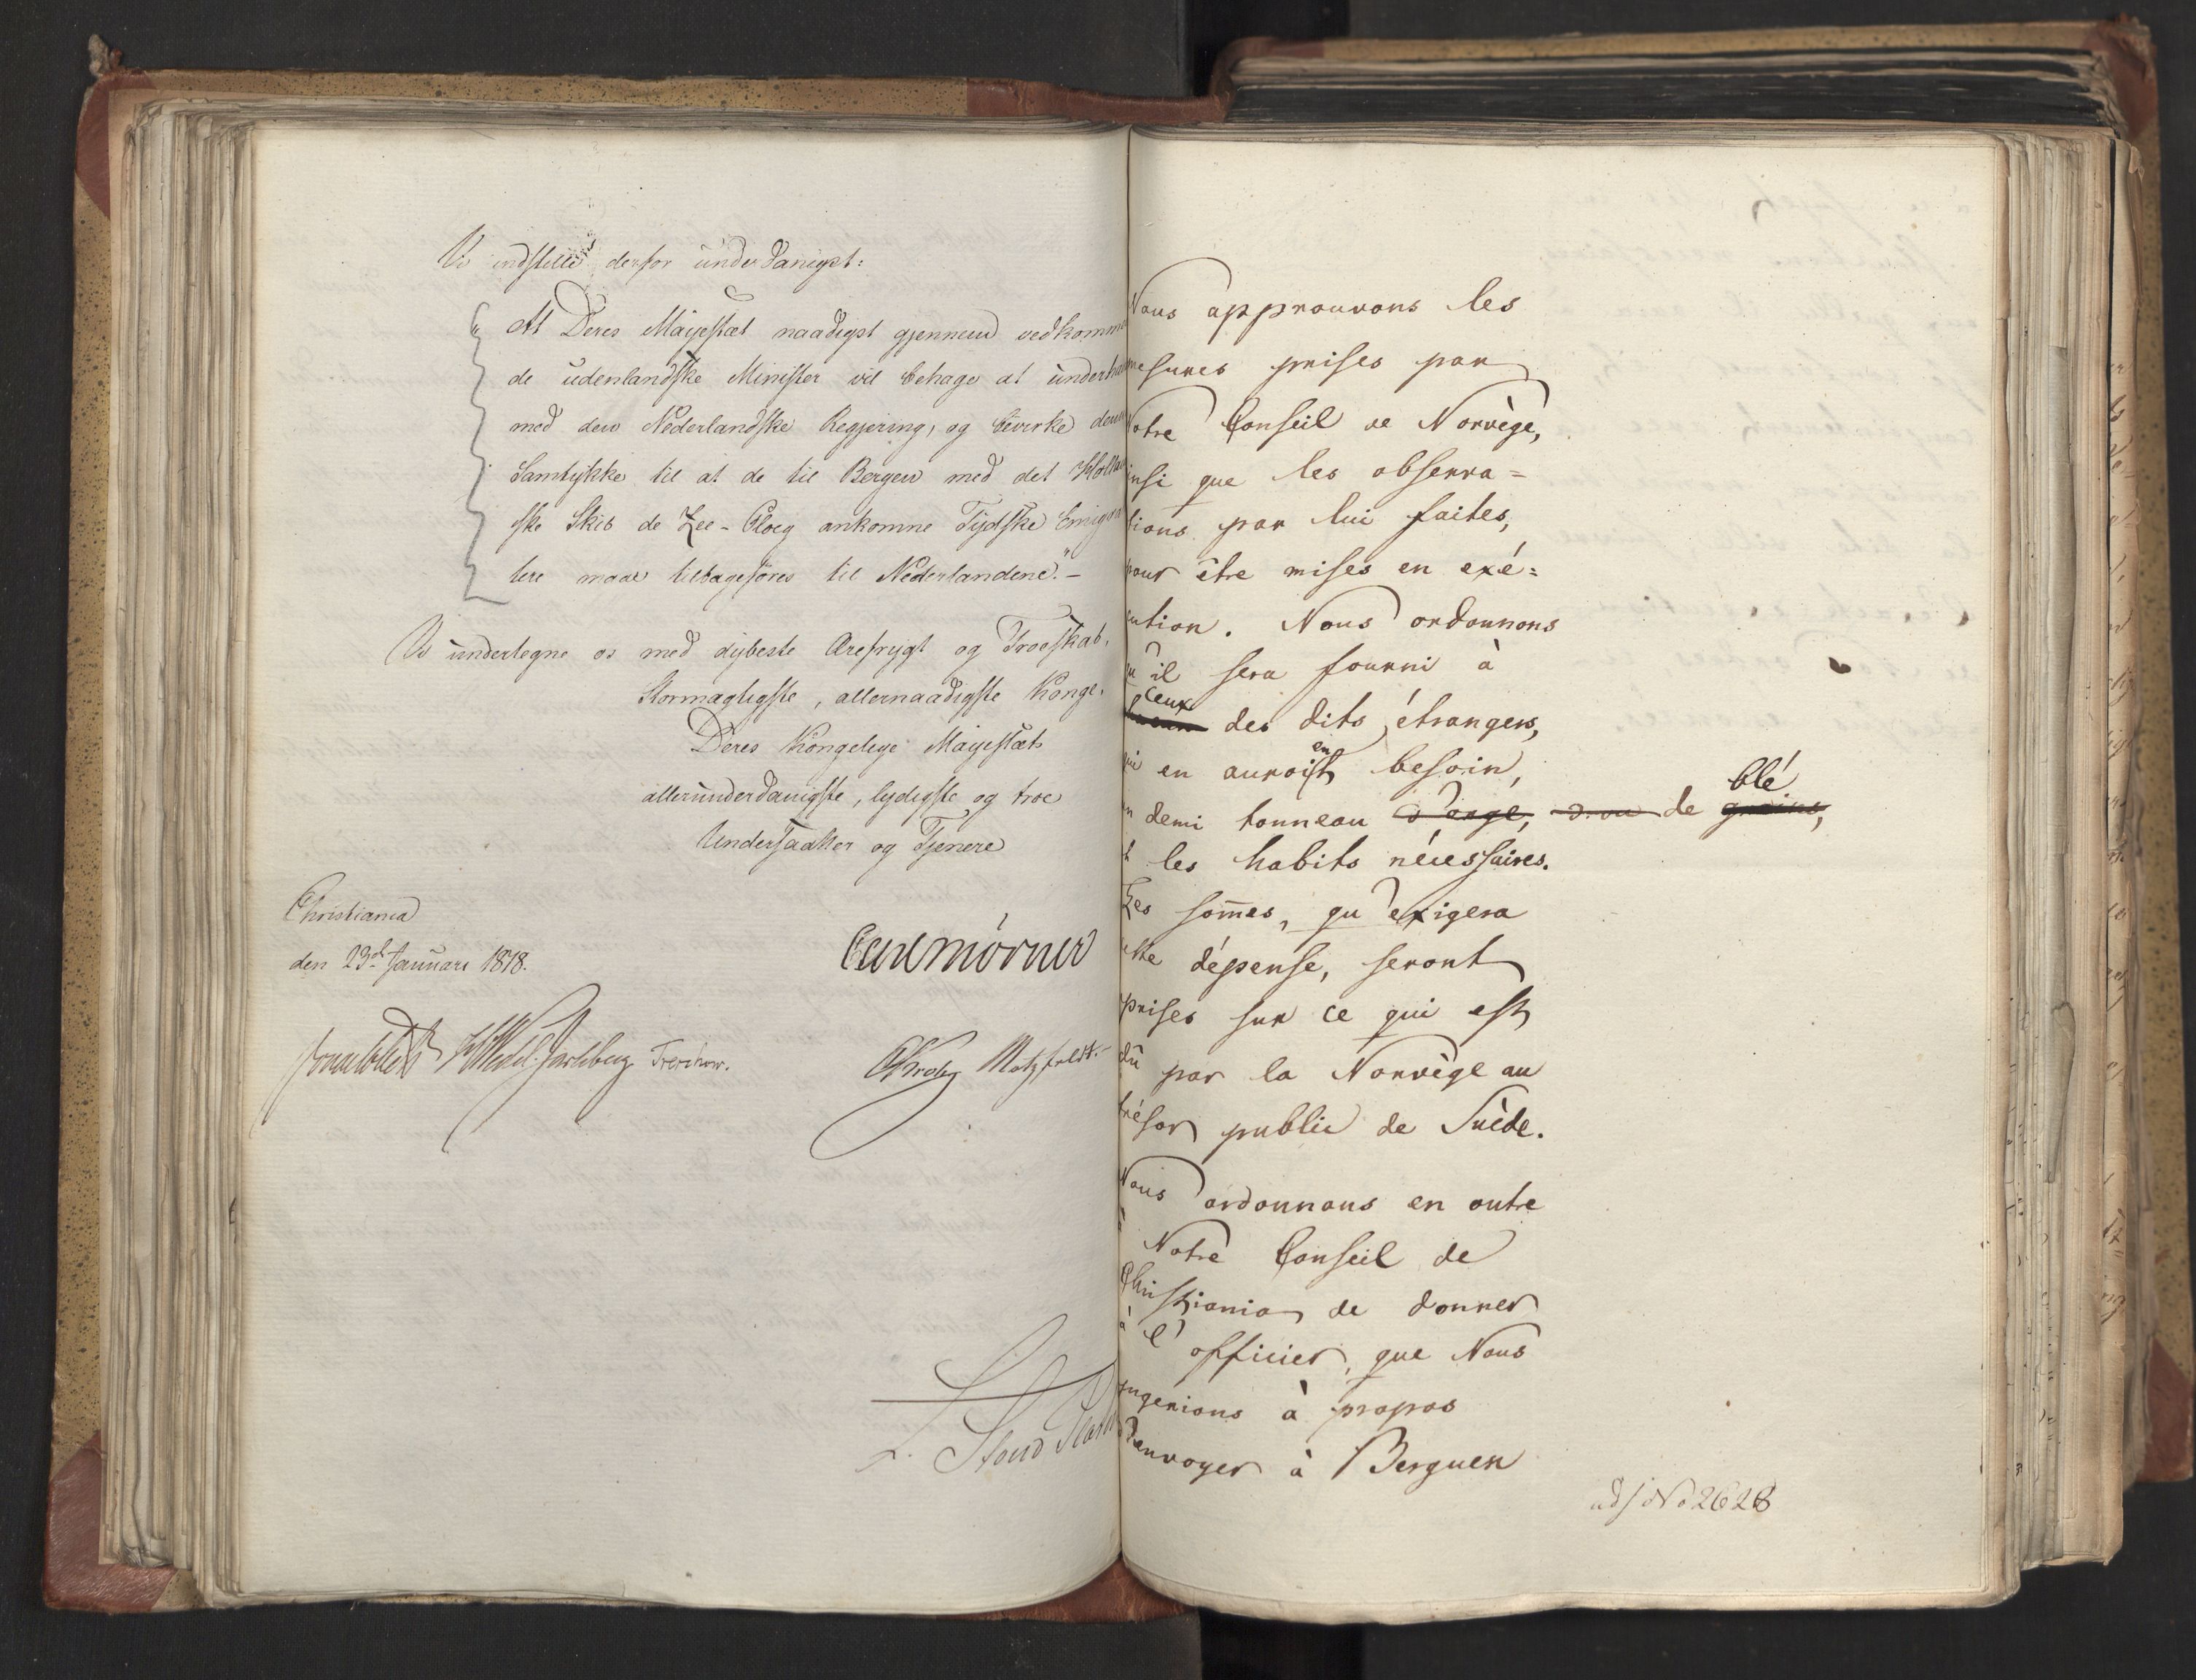 Vi indstille derfor underdanigst:
"At Deres Mayestæt naadigst gjennem vedkomme
de udenlandske Minister vil behage at underha
med den Nederlandske Regjering, og bevirke dens
Samtykke til at de til Bergen med det Hollan
ske Skib de Zee-Ploeg ankomne Tydske Emigra
tere maae tilbageföres til Nederlandene."-
Vi undertegne os med dybeste Ærefrygt og Troeskab,
Stormægtigste, allernaadigste Konge,
Deres Kongelige Mayestæts
allerunderdanigste, lydigste og troe
Undersaatter og Tjenere
Christiania
den 23de Januari 1818.
Carl Mörner
Sommerhielm HWedel-Jarlsberg Treschow.
CKrohg Motzfeldt.
L. Stoud Plato
Nous approuvons les
mesures prises par
Notre Conseil de Norvège,
insi que les observa=
tions par lui faites,
pour être mises en exé=
cution. Nous ordonnons
qu'il sera fourni à
ceux des dits étrangers,
qui en auroient besoin,
un demi tonneau d'orge, d. ou de blé grains,
et les habits nécessaires.
Les som̄es, qu'exigera
ette dépense, seront
prises sur ce qui est
dû par la Norvège au
trésor public de Suède.
Nous ordonnons en outre
à Notre Conseil de
Christiania de donner
à l'officier, que Nous
jugerions à propos
d'envoyer à Berguen
ad j No 2628